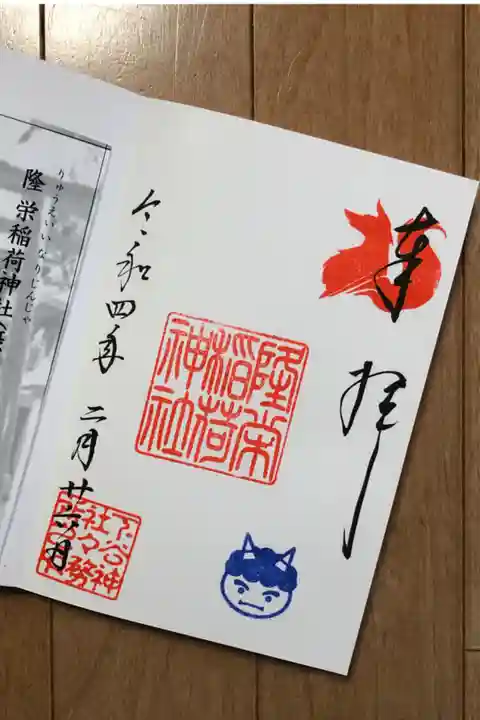 奉拝
隆栄
稲荷
神社
令和四年 二月廿六日
下谷神
社々務
所之印
りゅうえいいなりじんじゃ
隆栄稲荷神社